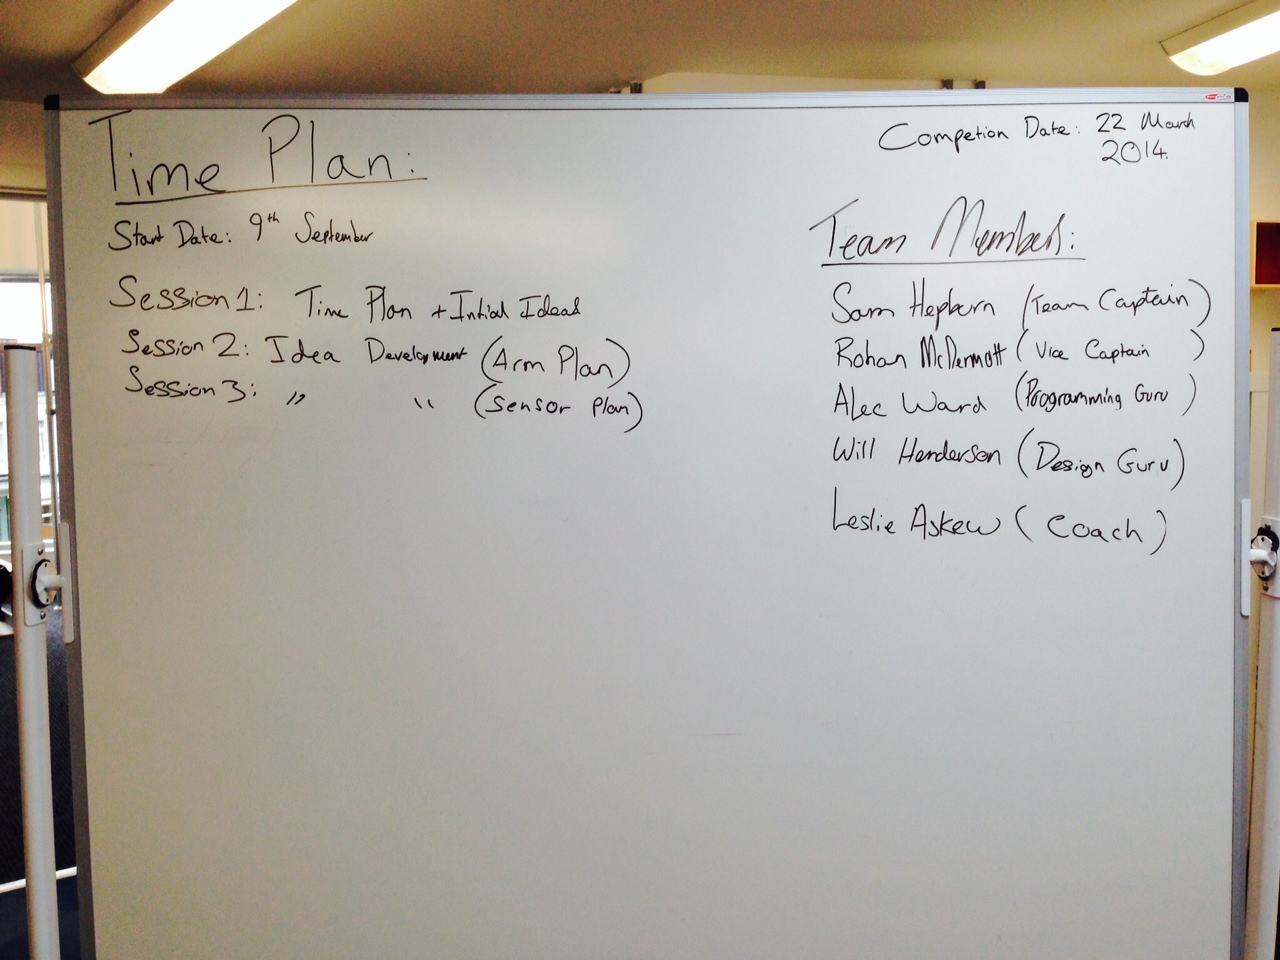 Time Plan:
Start Date: 9th September
Session 1: Time Plan + Intial Ideas
Session 2: Idea Development (Arm Plan)
Session 3: " " (Sensor Plan)
Competion Date: 22 March
2014.
Team Members:
Sam Hepburn (Team Captain)
Rohan McDermott (Vice Captain)
Alec Ward (Programming Guru)
Will Henderson (Design Guru)
Leslie Askew (Coach)